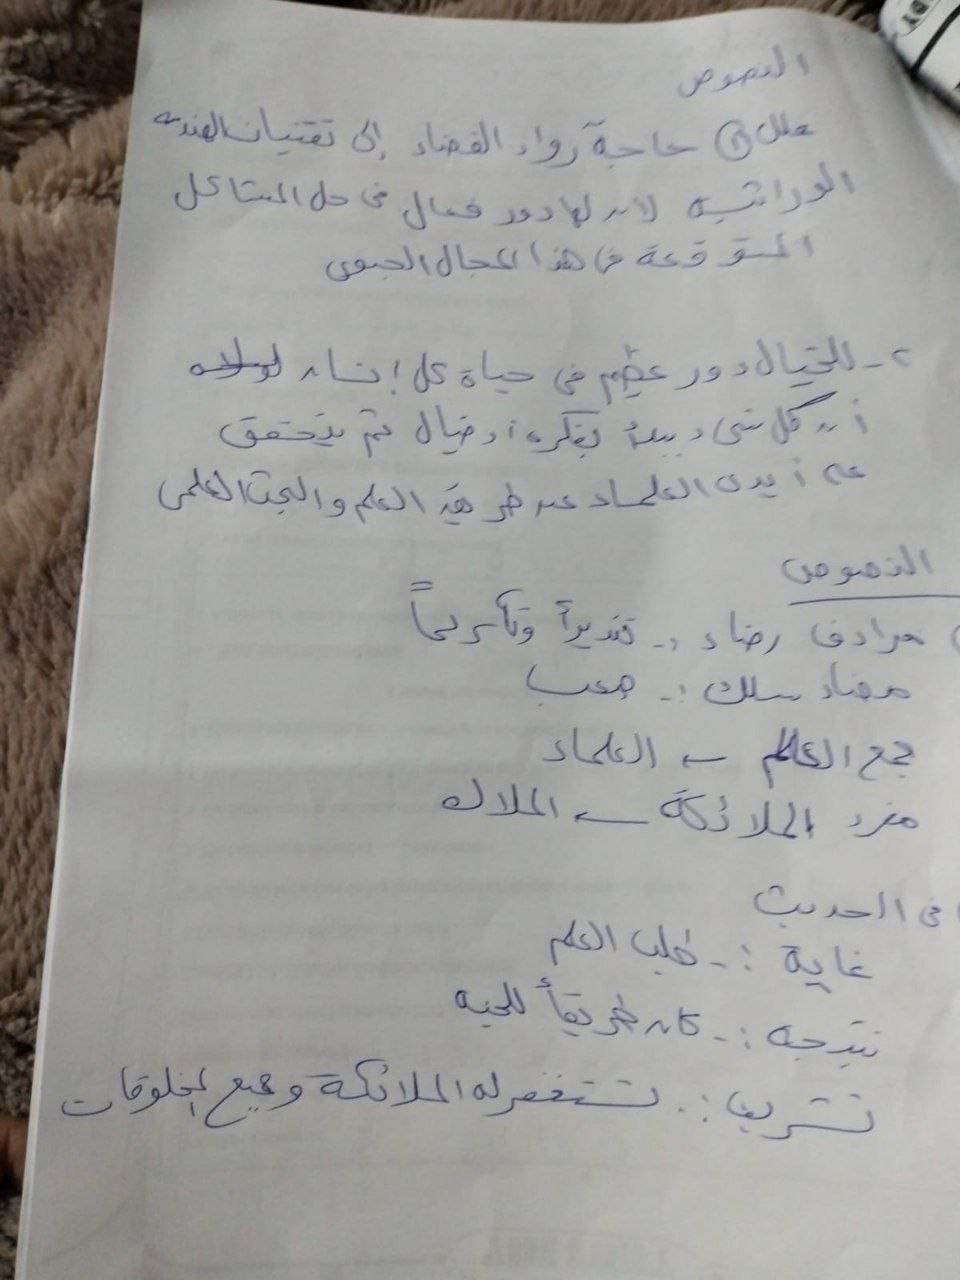 النصوص
علل ① حاجة رواد الفضاء إلى تقنيات الهندسة
الوراثية لأن لها دور فعال في حل المشاكل
المتوقعة في هذا المجال الحيوي
٢- للخيال دور عظيم في حياة كل إنسان
أن كل شيء يبدأ بفكرة أو خيال ثم يتحقق
على أيدي العلماء عن طريق العلم والبحث العلمي
النصوص
مرادف رضاء :- تقديراً وتكريماً
مضاد سهلك :- صعب
جمع العالم ← العلماء
مفرد الملائكة ← الملاك
في الحديث
غاية :- طلب العلم
نتيجة :- كان طريقاً للجنة
تشريف :- تستغفر له الملائكة وجميع المخلوقات